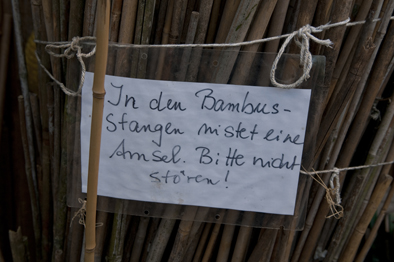 In den Bambus-
stangen nistet eine
Amsel. Bitte nicht
stören!